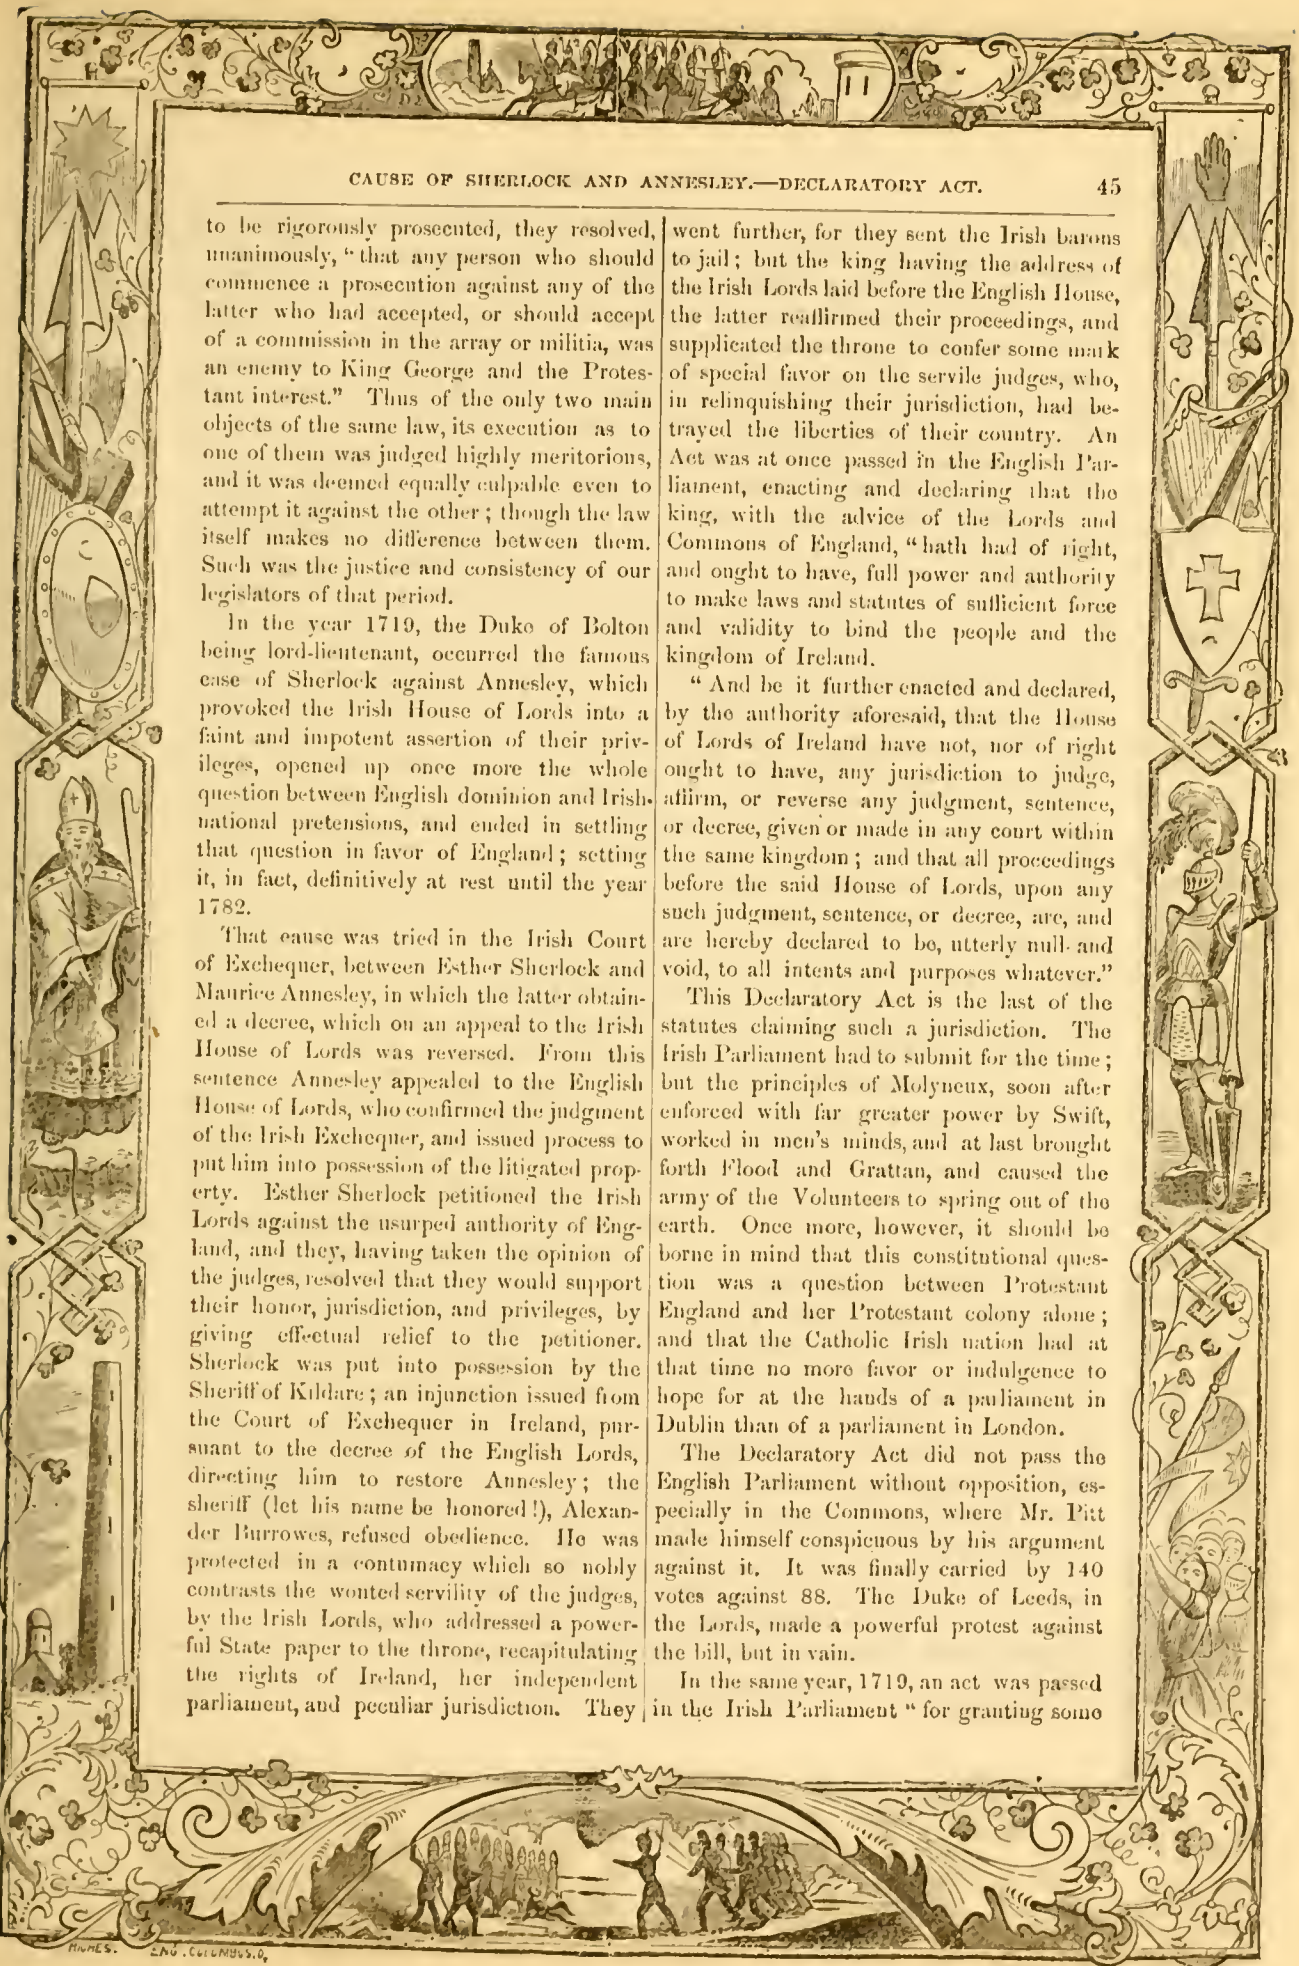 CAUSE OF SHERLOCK AND ANNESLEY.—DECLARATORY ACT. 45
to be rigorously prosecuted, they resolved,
unanimously, "that any person who should
commence a prosecution against any of the
latter who had accepted, or should accept
of a commission in the array or militia, was
an enemy to King George and the Protes-
tant interest." Thus of the only two main
objects of the same law, its execution as to
one of them was judged highly meritorious,
and it was deemed equally culpable even to
attempt it against the other; though the law
itself makes no difference between them.
Such was the justice and consistency of our
legislators of that period.
In the year 1719, the Duke of Bolton
being lord-lieutenant, occurred the famous
case of Sherlock against Annesley, which
provoked the Irish House of Lords into a
faint and impotent assertion of their priv-
ileges, opened up once more the whole
question between English dominion and Irish
national pretensions, and ended in settling
that question in favor of England; setting
it, in fact, definitively at rest until the year
1782.
That cause was tried in the Irish Court
of Exchequer, between Esther Sherlock and
Maurice Annesley, in which the latter obtain-
ed a decree, which on an appeal to the Irish
House of Lords was reversed. From this
sentence Annesley appealed to the English
House of Lords, who confirmed the judgment
of the Irish Exchequer, and issued process to
put him into possession of the litigated prop-
erty. Esther Sherlock petitioned the Irish
Lords against the usurped authority of Eng-
land, and they, having taken the opinion of
the judges, resolved that they would support
their honor, jurisdiction, and privileges, by
giving effectual relief to the petitioner.
Sherlock was put into possession by the
Sheriff of Kildare; an injunction issued from
the Court of Exchequer in Ireland, pur-
suant to the decree of the English Lords,
directing him to restore Annesley; the
sheriff (let his name be honored!), Alexan-
der Burrowes, refused obedience. He was
protected in a contumacy which so nobly
contrasts the wonted servility of the judges,
by the Irish Lords, who addressed a power-
ful State paper to the throne, recapitulating
the rights of Ireland, her independent
parliament, and peculiar jurisdiction. They
went further, for they sent the Irish barons
to jail; but the king having the address of
the Irish Lords laid before the English House,
the latter reaffirmed their proceedings, and
supplicated the throne to confer some mark
of special favor on the servile judges, who,
in relinquishing their jurisdiction, had be-
trayed the liberties of their country. An
Act was at once passed in the English Par-
liament, enacting and declaring that the
king, with the advice of the Lords and
Commons of England, "hath had of right,
and ought to have, full power and authority
to make laws and statutes of sufficient force
and validity to bind the people and the
kingdom of Ireland.
"And be it further enacted and declared,
by the authority aforesaid, that the House
of Lords of Ireland have not, nor of right
ought to have, any jurisdiction to judge,
affirm, or reverse any judgment, sentence,
or decree, given or made in any court within
the same kingdom; and that all proceedings
before the said House of Lords, upon any
such judgment, sentence, or decree, are, and
are hereby declared to be, utterly null and
void, to all intents and purposes whatever."
This Declaratory Act is the last of the
statutes claiming such a jurisdiction. The
Irish Parliament had to submit for the time;
but the principles of Molyneux, soon after
enforced with far greater power by Swift,
worked in men's minds, and at last brought
forth Flood and Grattan, and caused the
army of the Volunteers to spring out of the
earth. Once more, however, it should be
borne in mind that this constitutional ques-
tion was a question between Protestant
England and her Protestant colony alone;
and that the Catholic Irish nation had at
that time no more favor or indulgence to
hope for at the hands of a parliament in
Dublin than of a parliament in London.
The Declaratory Act did not pass the
English Parliament without opposition, es-
pecially in the Commons, where Mr. Pitt
made himself conspicuous by his argument
against it. It was finally carried by 140
votes against 88. The Duke of Leeds, in
the Lords, made a powerful protest against
the bill, but in vain.
In the same year, 1719, an act was passed
in the Irish Parliament "for granting some
ENG. COLUMBUS.O.